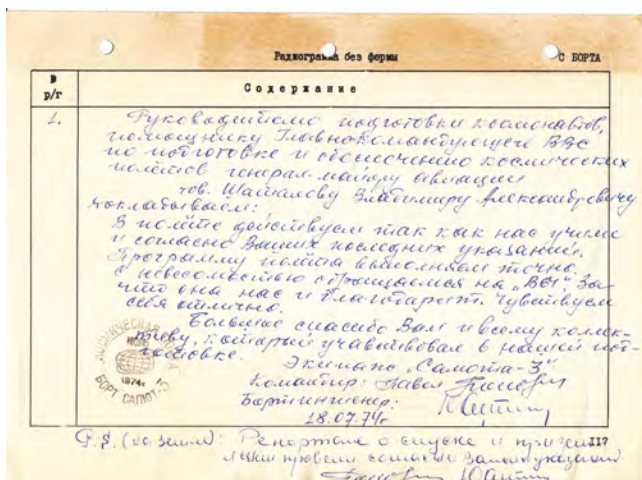 Радиограмма без формы С БОРТА
№ р/г Содержание
1. Руководителю подготовки космонавтов,
помощнику Главнокомандующего ВВС
по подготовке и обеспечению космических
полётов генерал-майору авиации
тов. Шаталову Владимиру Александровичу
Докладываем:
В полёте действуем так как нас учили
и согласно Ваших последних указаний.
Программу полёта выполняем точно.
С невесомостью обращаемся на „ВЫ“. За
что она нас и благодарит. Чувствуем
себя отлично.
Большое спасибо Вам и всему коллек-
тиву, который учавствовал в нашей под-
готовке.
КОСМИЧЕСКАЯ ПОЧТА
1974г.
БОРТ САЛЮТ-3
Экипаж „Салюта-3“
Командир: Павел Попович
Бортинженер:
18.07.74г
P.S. (на земле): Репортаж о спуске и призем- 117
лении провели согласно Ваших указаний
Попович